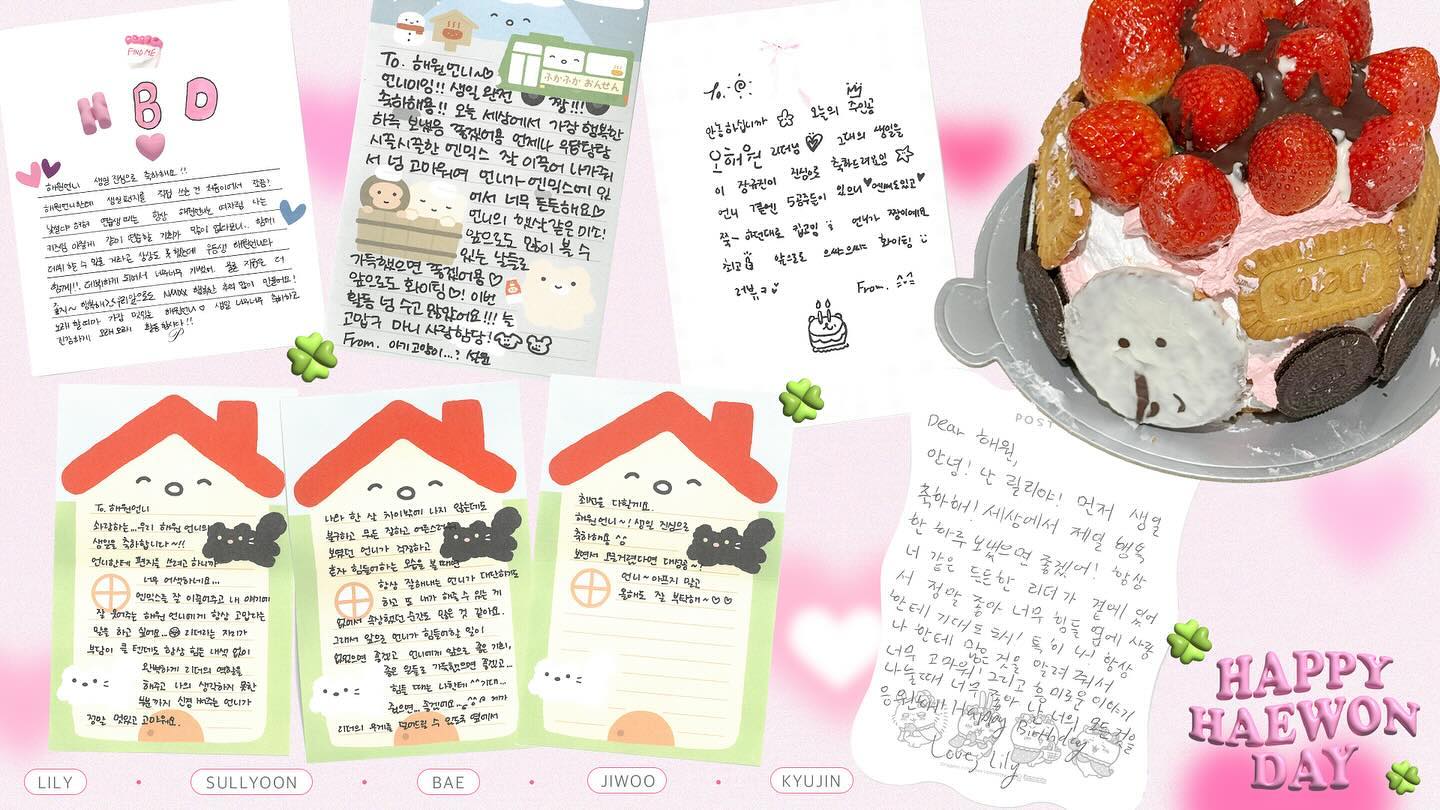 FIND ME
HBD
해원언니 생일 진심으로 축하해요!!
해원언니한테 생일편지를 직접 쓰는 건 처음이에서 잠꼼?
함께!! 데뷔하게 되어서 너무너무 기뻤어.
노래 할때마 가장 멋있는 해원언니♡ 생일 너무너무 축하하고
건강하게 오래오래 활동 합시다!!
To. 해원언니~♡
언니이잉!! 생일 완전 짱!!!
축하해용!! 오늘 세상에서 가장 행복한
하루 보냈음 좋겠어용 언제나 우당탕탕
시끌시끌한 엔믹스 잘 이끌어 나가줘
서 넘 고마워여 언니가 엔믹스에 있
어서 너무 든든해요♡
언니의 햇살같은 미소!
앞으로도 많이 볼 수
있는 날들로
가득했으면 좋겠어용♡
앞으로도 화이팅♡! 이번
활동 넘 수고 많았어요!!! 늘
고맙구 마니 사랑함당!
From. 아기고양이...? 설윤
ふかふか おんせん
To.
안녕하십니까 오늘의 주인공
오해원 리더님 그대의 생일을
이 장규진이 진심으로 축하드려요잉
언니 옆엔 5공주들이 있으니
쭉~ 하던대로 킵고잉 언니가 짱이에요
최고 앞으로 으쌰으쌰 화이팅
러뷰 From. ^^
To. 해원언니
사랑하는...우리 해원 언니의
생일을 축하합니다~!!
언니한테 편지를 쓰려고 하니까
너무 어색하네요...
엔믹스를 잘 이끌어주고 내 얘기에
잘 웃어주는 해원 언니에게 항상 고맙다는
말을 하고 싶어요... 리더라는 자리가
부담이 클 텐데도 항상 힘든 내색 없이
완벽하게 리더의 역할을
해주고 나의 생각하지 못한
부분까지 신경 써주는 언니가
정말 멋있고 고마워요.
나와 한 살 차이밖에 나지 않는데도
불구하고 뭐든 잘하고 어른스러워
보였던 언니가 걱정하고
혼자 힘들어하는 모습을 볼 때면
항상 잘해내는 언니가 대단하기도
하고 또 내가 해줄 수 있는 게
없어서 속상했던 순간도 많은 것 같아요.
그래서 앞으로 언니가 힘들어할 일이
없었으면 좋겠고 언니에게 앞으로 좋은 기회,
좋은 일들로 가득했으면 좋겠고...
힘들 때는 나한테 ^^기대...
줬으면... 좋겠어요.. 제가
리더의 무게를 덜어드릴 수 있도록 옆에서
최선을 다할게요.
해원언니~! 생일 진심으로
축하해용 ^^
보면서 오글거렸다면 대성공~!
언니~ 아프지 말고
올해도 잘 부탁해~♡♡
POST
Dear 해원,
안녕! 난 릴리야! 먼저 생일
축하해! 세상에서 제일 행복
한 하루 보냈으면 좋겠어! 항상
너 같은 든든한 리더가 곁에 있어
서 정말 좋아 너무 힘들 땐 옆에 사람
한테 기대도 돼! 특히 나! 항상
나 한테 많은 것을 알려 줘서
너무 고마워! 그리고 흥미로운 이야기
나눌때 너무 좋아 난 너의 모든 것을
응원해!! Happy Birthday
Love, Lily
Lotus
HAPPY
HAEWON
DAY
LILY • SULLYOON • BAE • JIWOO • KYUJIN